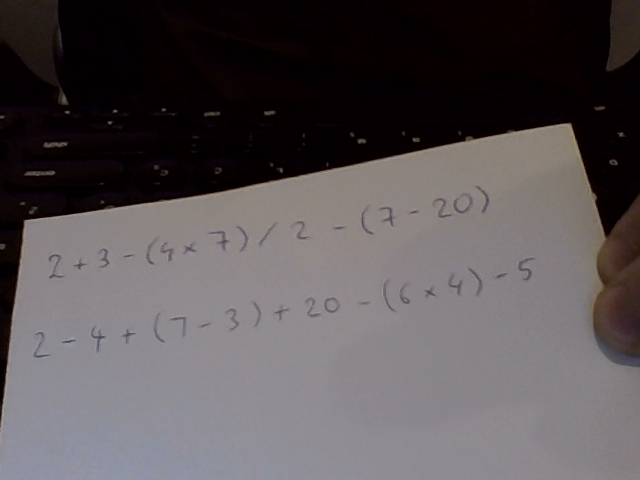 2 + 3 - (4 × 7) / 2 - (7 - 20)
2 - 4 + (7 - 3) + 20 - (6 × 4) - 5